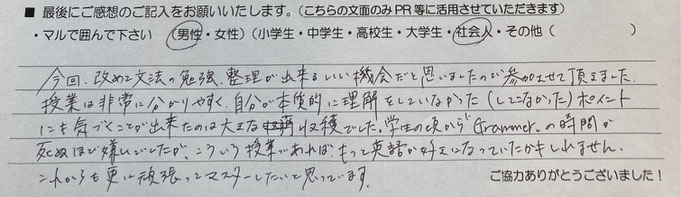 ■ 最後にご感想のご記入をお願いいたします。(こちらの文面のみPR等に活用させていただきます)
・マルで囲んで下さい (男性・女性)(小学生・中学生・高校生・大学生・社会人・その他( )
今回、改めて文法の勉強、整理が出来るいい機会だと思いましたので参加させて頂きました。
授業は非常に分かりやすく、自分が本質的に理解をしていなかった(してこなかった)ポイント
にも気づくことが出来たのは大きな収穫でした。学生の頃から「Grammer」の時間が
死ぬほど嫌いでしたが、こういう授業であれば、もっと英語が好きになっていたかもしれません。
これからも更に頑張ってマスターしたいと思っています。
ご協力ありがとうございました!